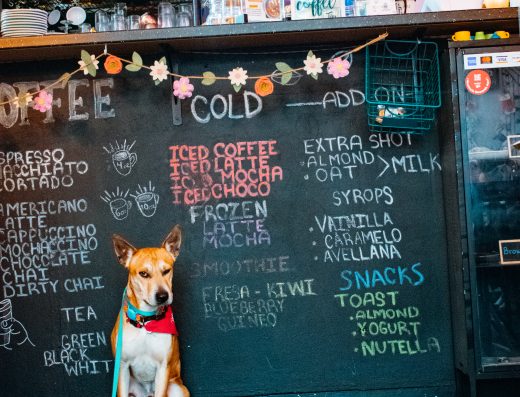 COFFEE
ESPRESSO
MACCHIATO
CORTADO
AMERICANO
LATTE
CAPPUCCINO
MOCHACCINO
CHOCOLATE
CHAI
DIRTY CHAI
TEA
GREEN
BLACK
WHIT
COLD
ICED COFFEE
ICED LATTE
ICED MOCHA
ICED CHOCO
FROZEN
LATTE
MOCHA
SMOOTHIE
FRESA - KIWI
BLUEBERRY
GUINEO
ADD ON
EXTRA SHOT
. ALMOND > MILK
. OAT
SYROPS
. VAINILLA
. CARAMELO
. AVELLANA
SNACKS
TOAST
. ALMOND
. YOGURT
. NUTELLA
VISA